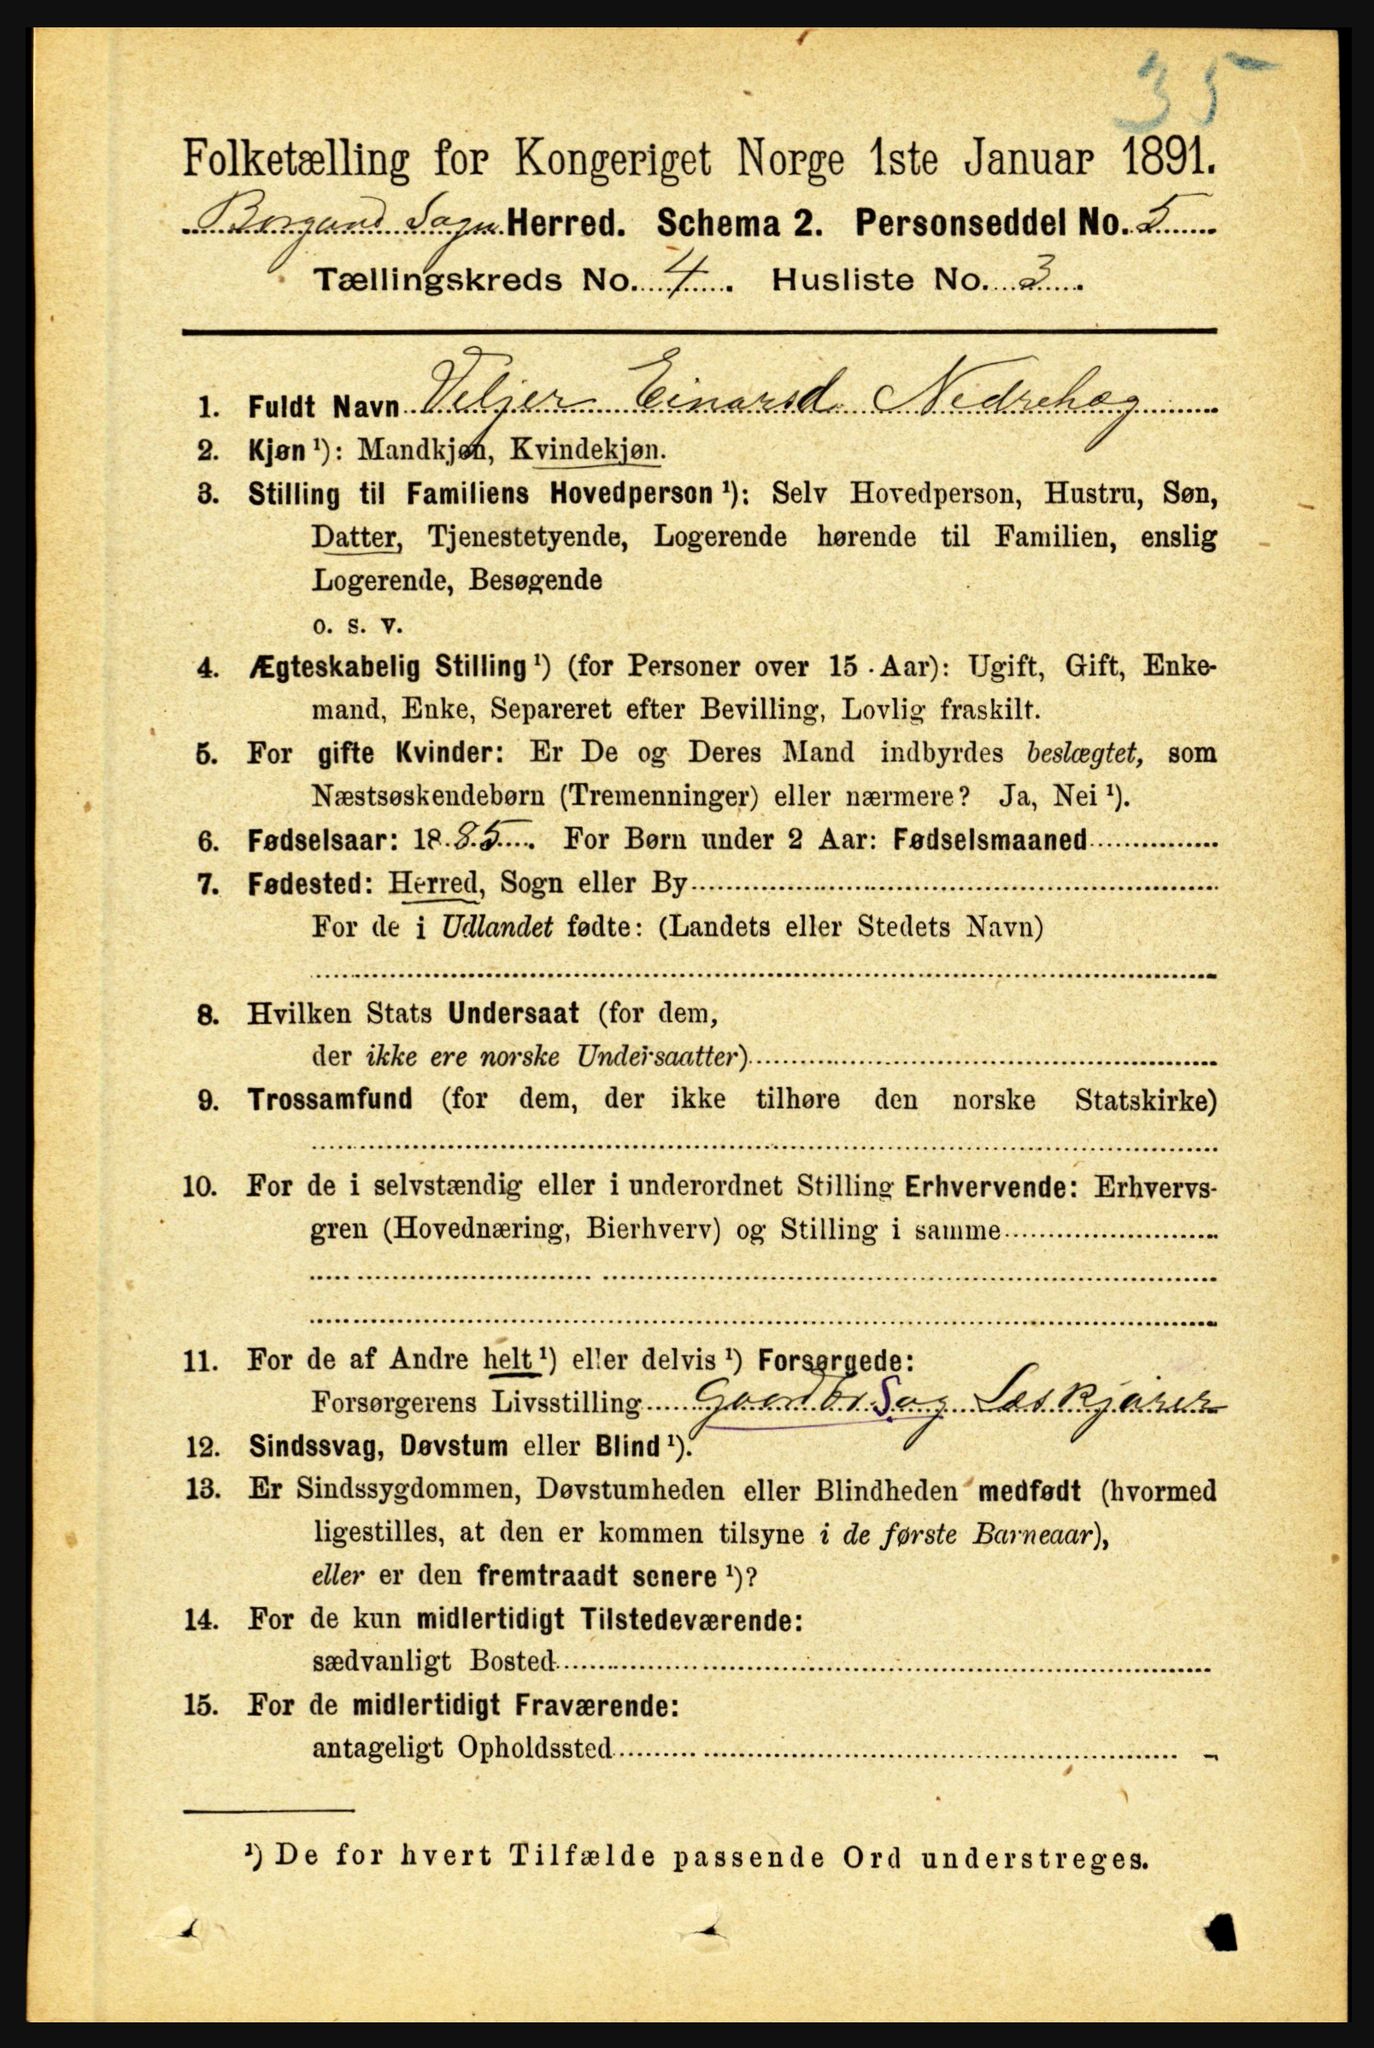 35
Folketælling for Kongeriget Norge 1ste Januar 1891.
Borgund Sogn Herred. Schema 2. Personseddel No. 5
Tællingskreds No. 4. Husliste No. 3.
1. Fuldt Navn Einarsd. Nedrehæg
2. Kjøn ¹): Mandkjøn, Kvindekjøn.
3. Stilling til Familiens Hovedperson ¹): Selv Hovedperson, Hustru, Søn,
Datter, Tjenestetyende, Logerende hørende til Familien, enslig
Logerende, Besøgende
o. s. v.
4. Ægteskabelig Stilling ¹) (for Personer over 15 Aar): Ugift, Gift, Enke-
mand, Enke, Separeret efter Bevilling, Lovlig fraskilt.
5. For gifte Kvinder: Er De og Deres Mand indbyrdes beslægtet, som
Næstsøskendebørn (Tremenninger) eller nærmere? Ja, Nei ¹).
6. Fødselsaar: 1885. For Børn under 2 Aar: Fødselsmaaned
7. Fødested: Herred, Sogn eller By
For de i Udlandet fødte: (Landets eller Stedets Navn)
8. Hvilken Stats Undersaat (for dem,
der ikke ere norske Undersaatter)
9. Trossamfund (for dem, der ikke tilhøre den norske Statskirke)
10. For de i selvstændig eller i underordnet Stilling Erhvervende: Erhvervs-
gren (Hovednæring, Bierhverv) og Stilling i samme
11. For de af Andre helt ¹) eller delvis ¹) Forsørgede:
Forsørgerens Livsstilling Gaardbr S og
12. Sindssvag, Døvstum eller Blind ¹).
13. Er Sindssygdommen, Døvstumheden eller Blindheden medfødt (hvormed
ligestilles, at den er kommen tilsyne i de første Barneaar),
eller er den fremtraadt senere ¹)?
14. For de kun midlertidigt Tilstedeværende:
sædvanligt Bosted
15. For de midlertidigt Fraværende:
antageligt Opholdssted
¹) De for hvert Tilfælde passende Ord understreges.